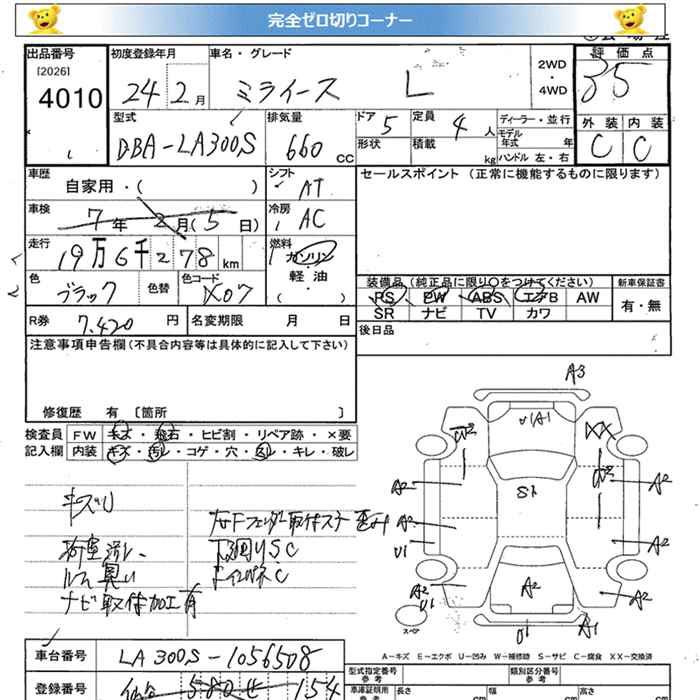 完全ゼロ切りコーナー
出品番号
[2026]
4010
初度登録年月
24 2月
車名・グレード
ミライース L
2WD
・
4WD
評価点
35
外装 内装
C C
型式
DBA-LA300S
排気量
660 CC
ドア 5
形状
定員 4 人
積載 kg
ディーラー・並行
モデル年式 年
ハンドル 左・右
車歴
自家用・( )
シフト
AT
セールスポイント (正常に機能するものに限ります)
車検
7年 2月(5日)
冷房
AC
走行
19万6千278 km
燃料
ガソリン
・
軽・油
( )
色
ブラック
色替
色コード
X07
装備品 (純正品に限り○をつけてください)
新車保証書
PS PW ABS エアB AW
SR ナビ TV カワ
有・無
R券 7,420 円
名変期限 月 日
後日品
注意事項申告欄(不具合内容等は具体的に記入して下さい)
修復歴 有 [箇所 ]
検査員 FW キズ・飛石・ヒビ割・リペア跡・×要
記入欄 内装 キズ・汚レ・コゲ・穴・スレ・キレ・破レ
キズU
荷室汚レ
ルーム臭い
ナビ取付加工有
下回りSC
A3
U1A1
W2
XX
W2
A2
A2
Sト
A2
U1
A2
A2
U1
A2
A2
U1
A1
スペア
A-キズ E-エクボ U-凹み W-補修跡 S-サビ C-腐食 XX-交換済
車台番号 LA300S-1056508
型式指定番号
類別区分番号
登録番号 仙台 580 せ 154
車庫証明用
参考
長さ cm
幅 cm
高さ cm